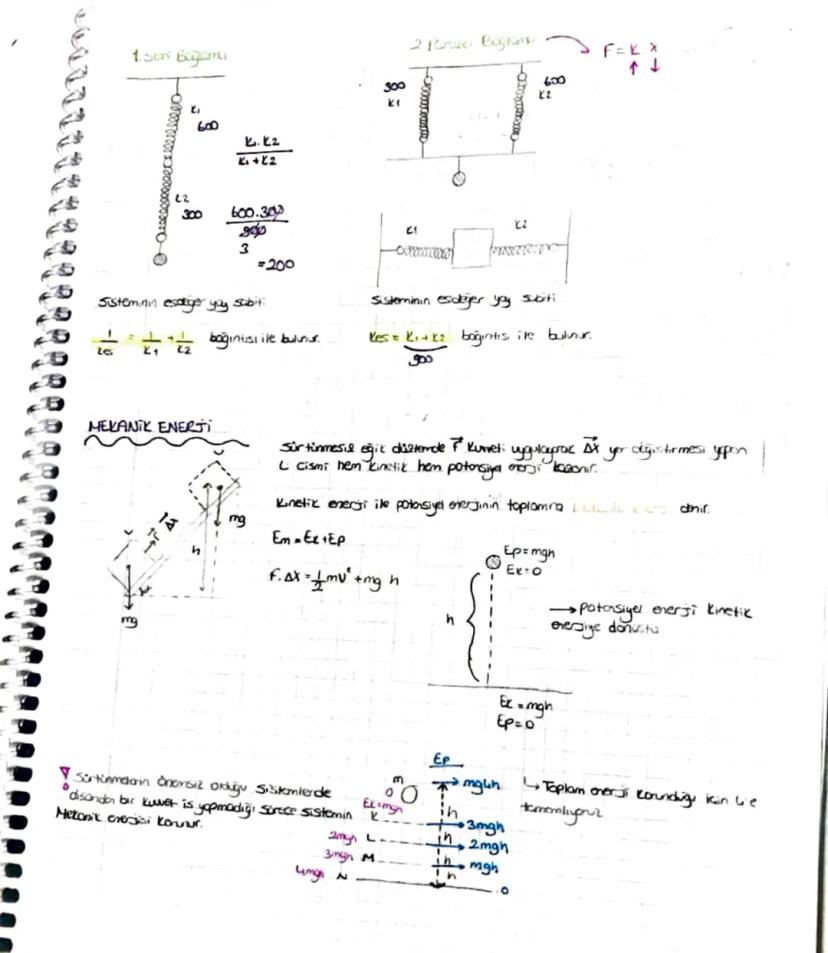 1. Seri Bağlama
K1
600
K2
300
K1.K2
K1+K2
600.300
900
3
=200
Sisteminin eşdeğer yay sabiti
1/Keş = 1/K1 + 1/K2 bağıntısı ile bulunur.
2 Paralel Bağlama
F=K X
300
K1
600
K2
K1
K2
Sisteminin eşdeğer yay sabiti
Keş = K1+K2 bağıntısı ile bulunur.
900
MEKANİK ENERJİ
Sürtünmesiz eğik düzlemde F kuvveti uygulayarak Δx yer değiştirmesi yapan
L cismi hem kinetik hem potansiyel enerji kazanır.
Kinetik enerji ile potansiyel enerjinin toplamına denir.
Em=Ek+Ep
F.Δx=1/2mv²+mg h
F
Δx
h
mg
mg
Ep=mgh
Ek=0
h
→potansiyel enerji kinetik
enerjiye dönüştü
Ek=mgh
Ep=0
Sürtünmelerin önemsiz olduğu sistemlerde
dışarıdan bir kuvvet iş yapmadığı sürece sistemin
Mekanik enerjisi korunur.
Ep
m
0
mg4h
Ek=mgh
K
h
3mgh
2mgh
L
h
2mgh
3mgh
M
h
mgh
4mgh
N
h
0
Toplam enerji korunduğu için 4'e
tamamlıyoruz